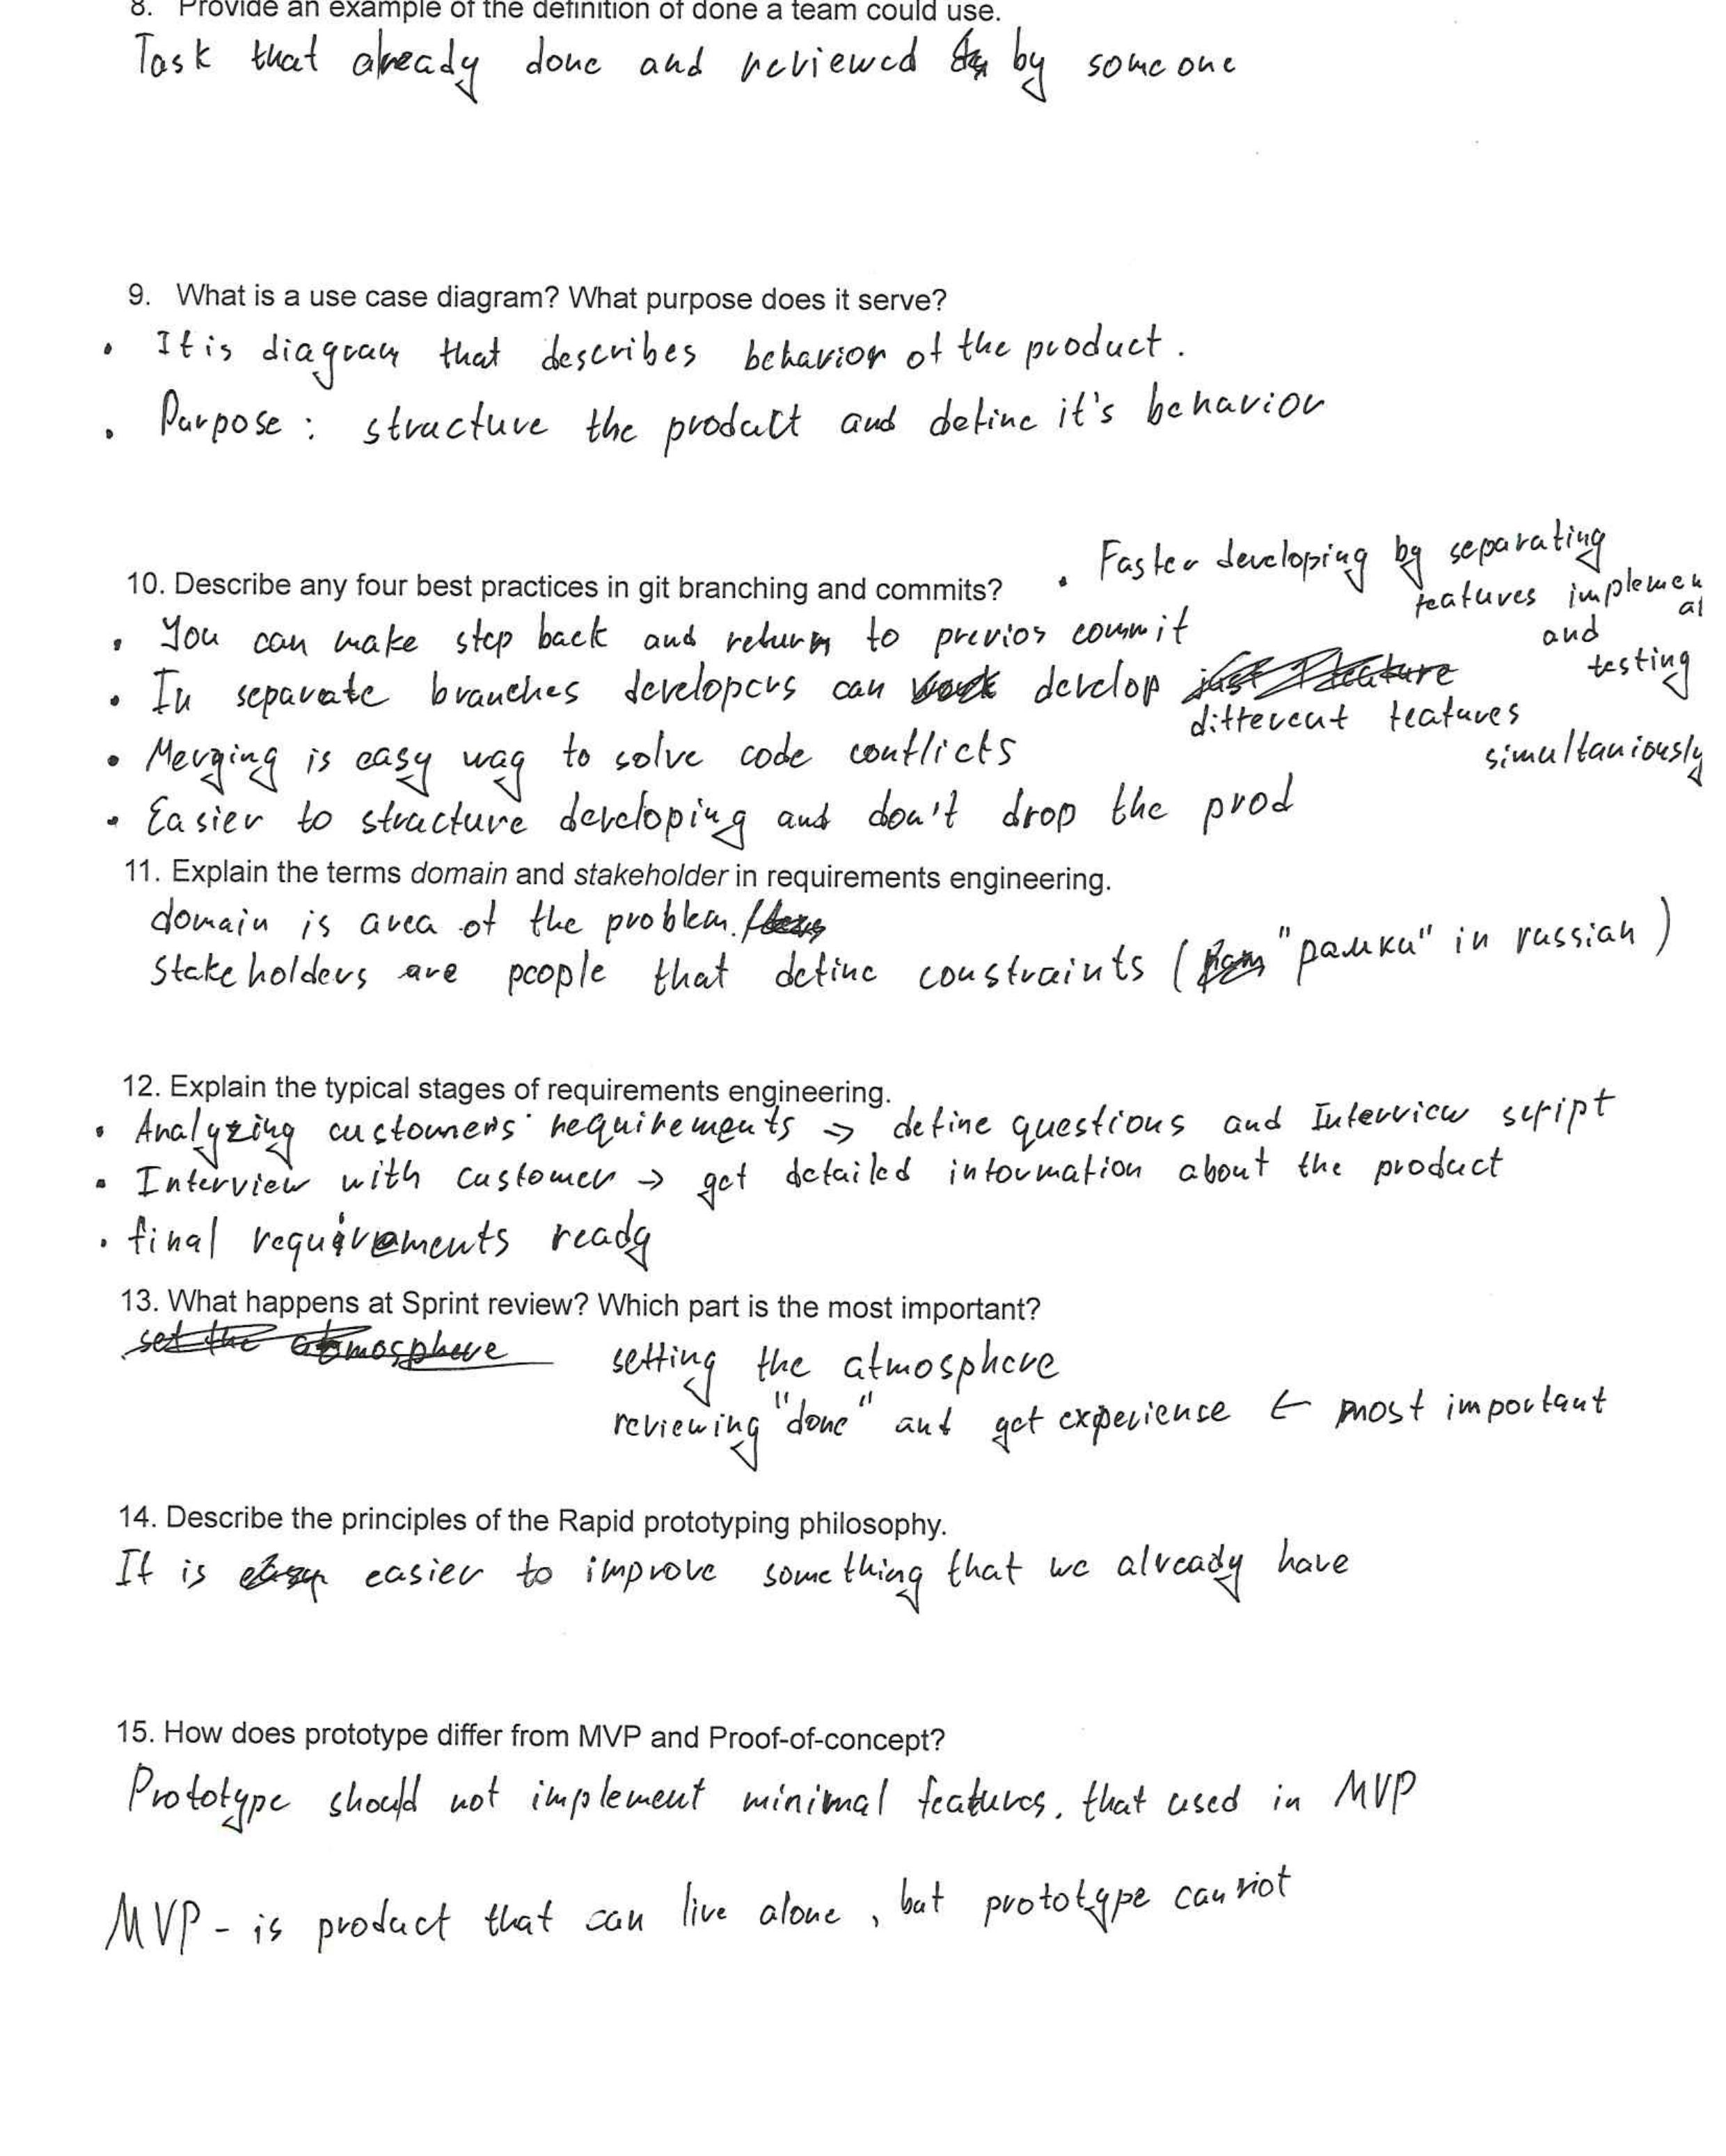 8. Provide an example of the definition of done a team could use.
Task that already done and reviewed by someone
9. What is a use case diagram? What purpose does it serve?
• It is diagram that describes behavior of the product.
• Purpose: structure the product and define it's behavior
10. Describe any four best practices in git branching and commits?
• Faster developing by separating
features implemen
at
and
testing
• You can make step back and return to previos commit
• In separate branches developers can work develop just 1 feature
different features
simultaniously
• Merging is easy way to solve code conflicts
• Easier to structure developing and don't drop the prod
11. Explain the terms domain and stakeholder in requirements engineering.
domain is area of the problem.
Stakeholders are people that define constraints ( "рамки" in russian )
12. Explain the typical stages of requirements engineering.
• Analyzing customers' requirements → define questions and Interview script
• Interview with customer → get detailed information about the product
• final requirements ready
13. What happens at Sprint review? Which part is the most important?
set the atmosphere
setting the atmosphere
reviewing "done" and get experience ← most important
14. Describe the principles of the Rapid prototyping philosophy.
It is easy easier to improve something that we already have
15. How does prototype differ from MVP and Proof-of-concept?
Prototype should not implement minimal features, that used in MVP
MVP - is product that can live alone, but prototype cannot